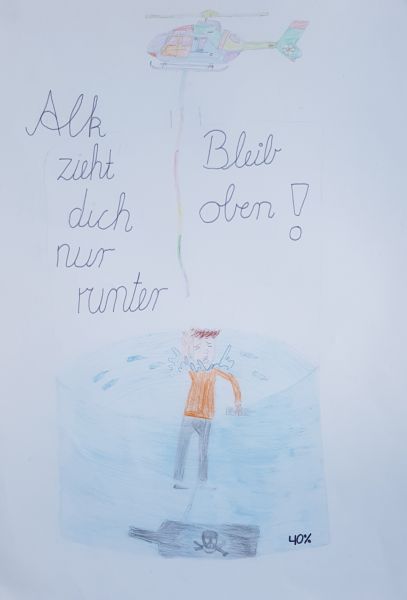 Alk
zieht
dich
nur
runter
Bleib
oben!
40%